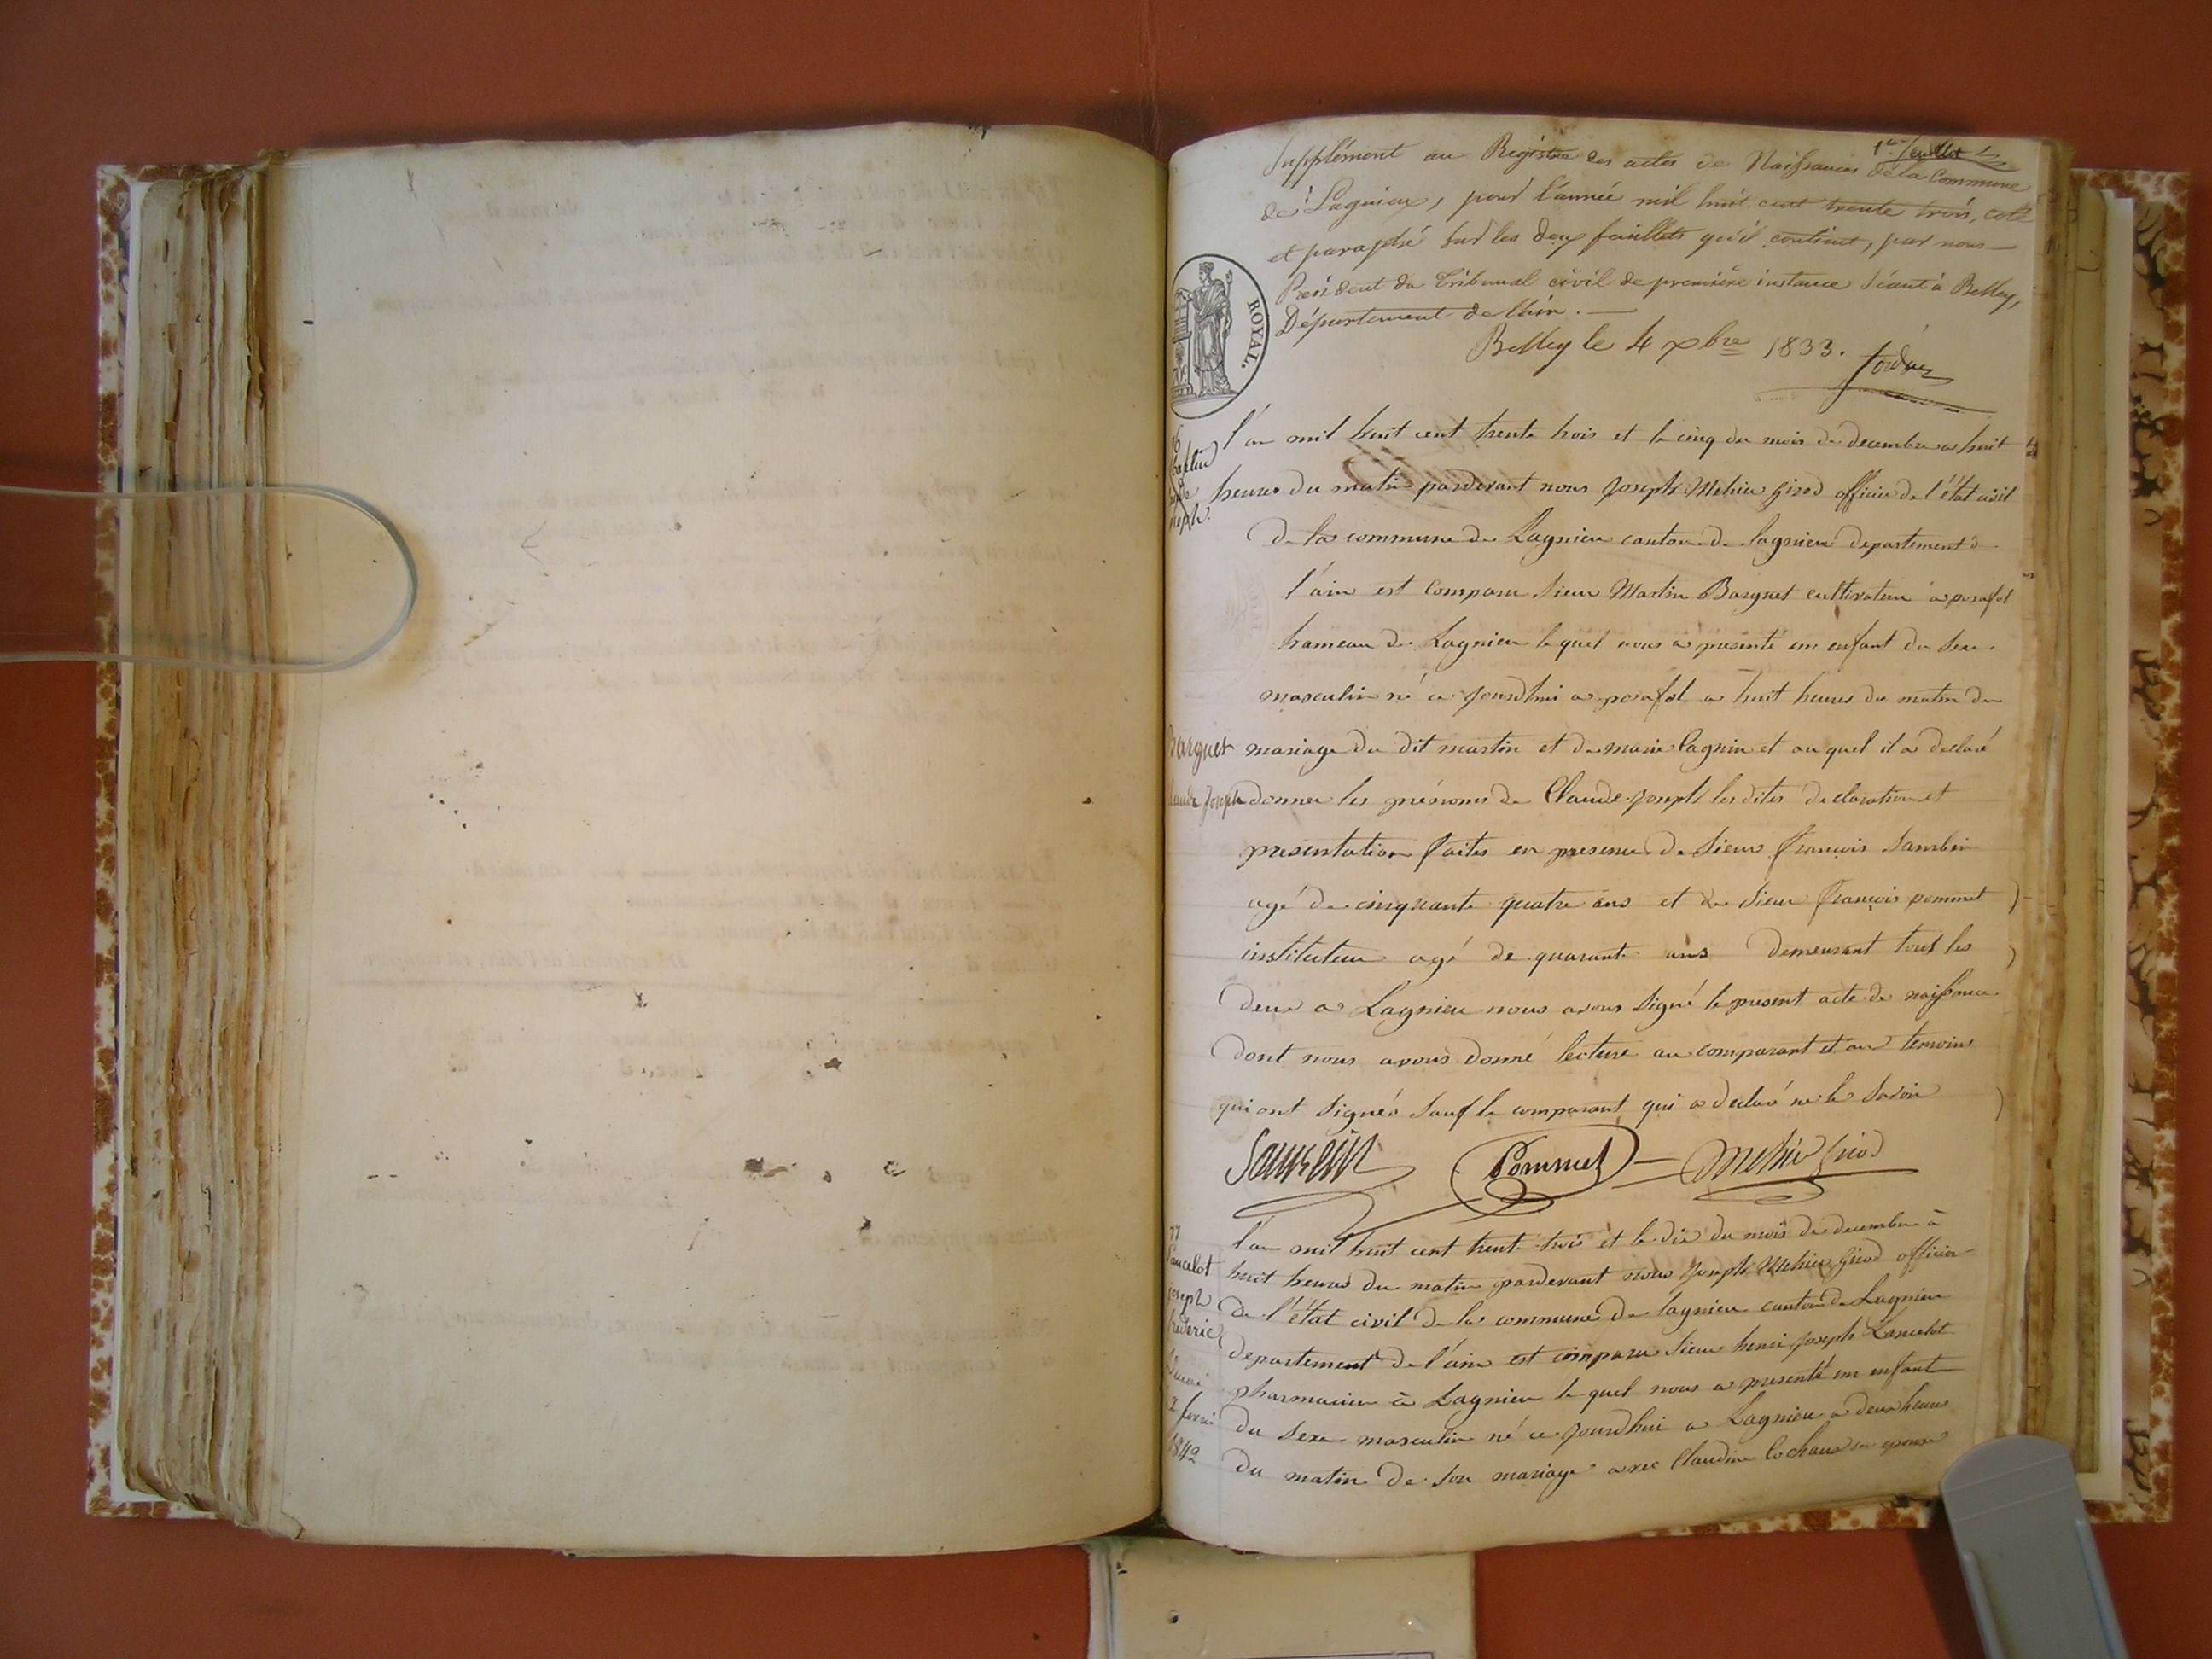 1er feuillet
Supplément au Registre des actes de Naissances de la Commune
de Lagnieu, pour l'année mil huit cent trente trois, coté
et paraphé sur les deux feuillets qu'il contient, par nous
Président du Tribunal civil de première instance séant à Belley,
Département de l'Ain.
Belley le 4 xbre 1833.
ROYAL.
l'an mil huit cent trente trois et le cinq du mois de decembre a huit
heures du matin pardevant nous Joseph Mehier Girod officier de l'état civil
de la commune de Lagnieu canton de lagnieu departement d
l'ain est comparu sieur Martin Barquet cultivateur a posafol
hameau de Lagnieu le quel nous a presenté un enfant du sexe
masculin né ce jourdhui a posafol a huit heures du matin du
Barquet
mariage du dit martin et de marie lagnin et au quel il a declaré
Claude Joseph
donner les prénoms de Claude Joseph les dites declaration et
presentation faites en presence de sieur françois Sambin
agé de cinquante quatre ans et de sieur françois pommet
instituteur agé de quarante ans demeurant tous les
deux a Lagnieu nous avons signé le present acte de naissance
dont nous avons donné lecture au comparant et au temoins
qui ont signés sauf le comparant qui a declaré ne le savoir
Sambin Pommet Mehier Girod
77
Lancelot
joseph
frederic
l'an mil huit cent trente trois et le dix du mois de decembre à
huit heures du matin pardevant nous Joseph Mehier Girod officier
de l'état civil de la commune de lagnieu canton de Lagnieu
departement de l'ain est comparu sieur henri joseph Lancelot
pharmacien à Lagnieu le quel nous a presenté un enfant
du sexe masculin né ce jourdhui a Lagnieu a deux heures
1842
du matin de son mariage avec Claudine